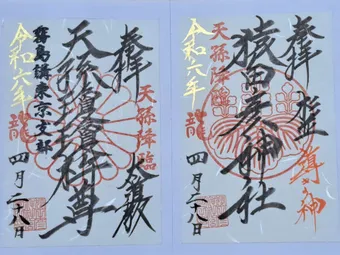 奉拝
導の神
猿田彦神社
天孫降臨
令和六年
龍
四月二十八日
奉拝
天孫降臨
天孫瓊瓊杵尊
霧島講東京支部
令和六年
龍
四月二十八日